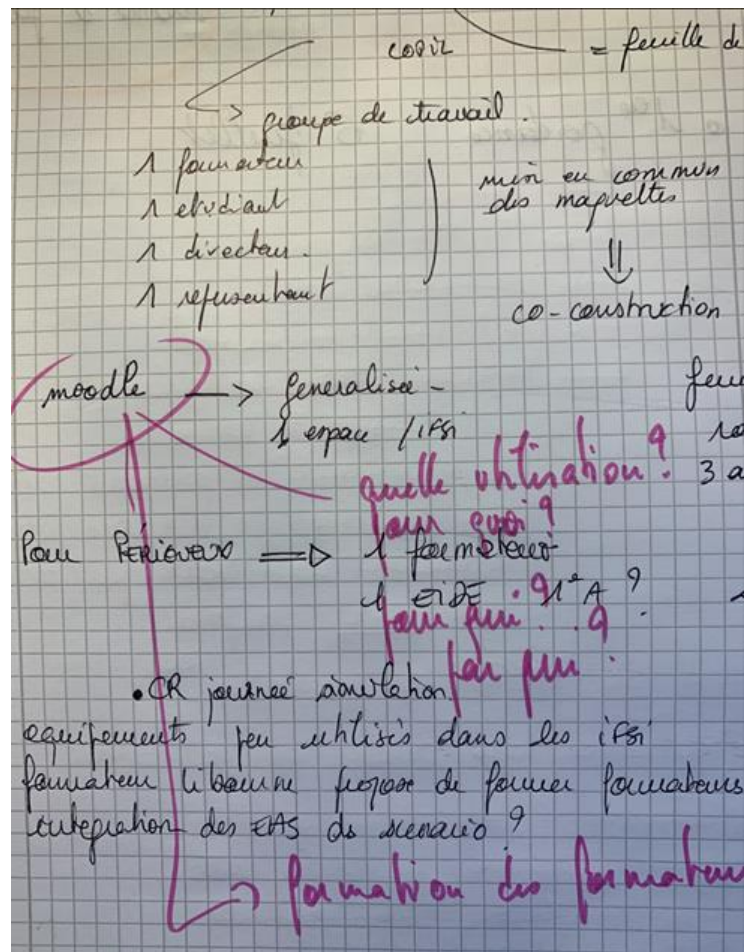 COPIL = feuille de
-> groupe de travail.
1 formateur
1 etudiant mise en commun
des maquettes
1 directeur.
1 representant ⇓
co-construction
moodle -> generalisée - feui
1 espace / IFSI
quelle utilisation? 3 a
pour quoi?
Pour PÉRIGUEUX => 1 formateur
1 EIDE 1°A ?
pour qui ?
par qui ?
• CR journeé simulation
equipements peu utilisés dans les IFSI
formateur libourne propose de former formateurs
integration des EAS ds scenario ?
-> formation des formateur